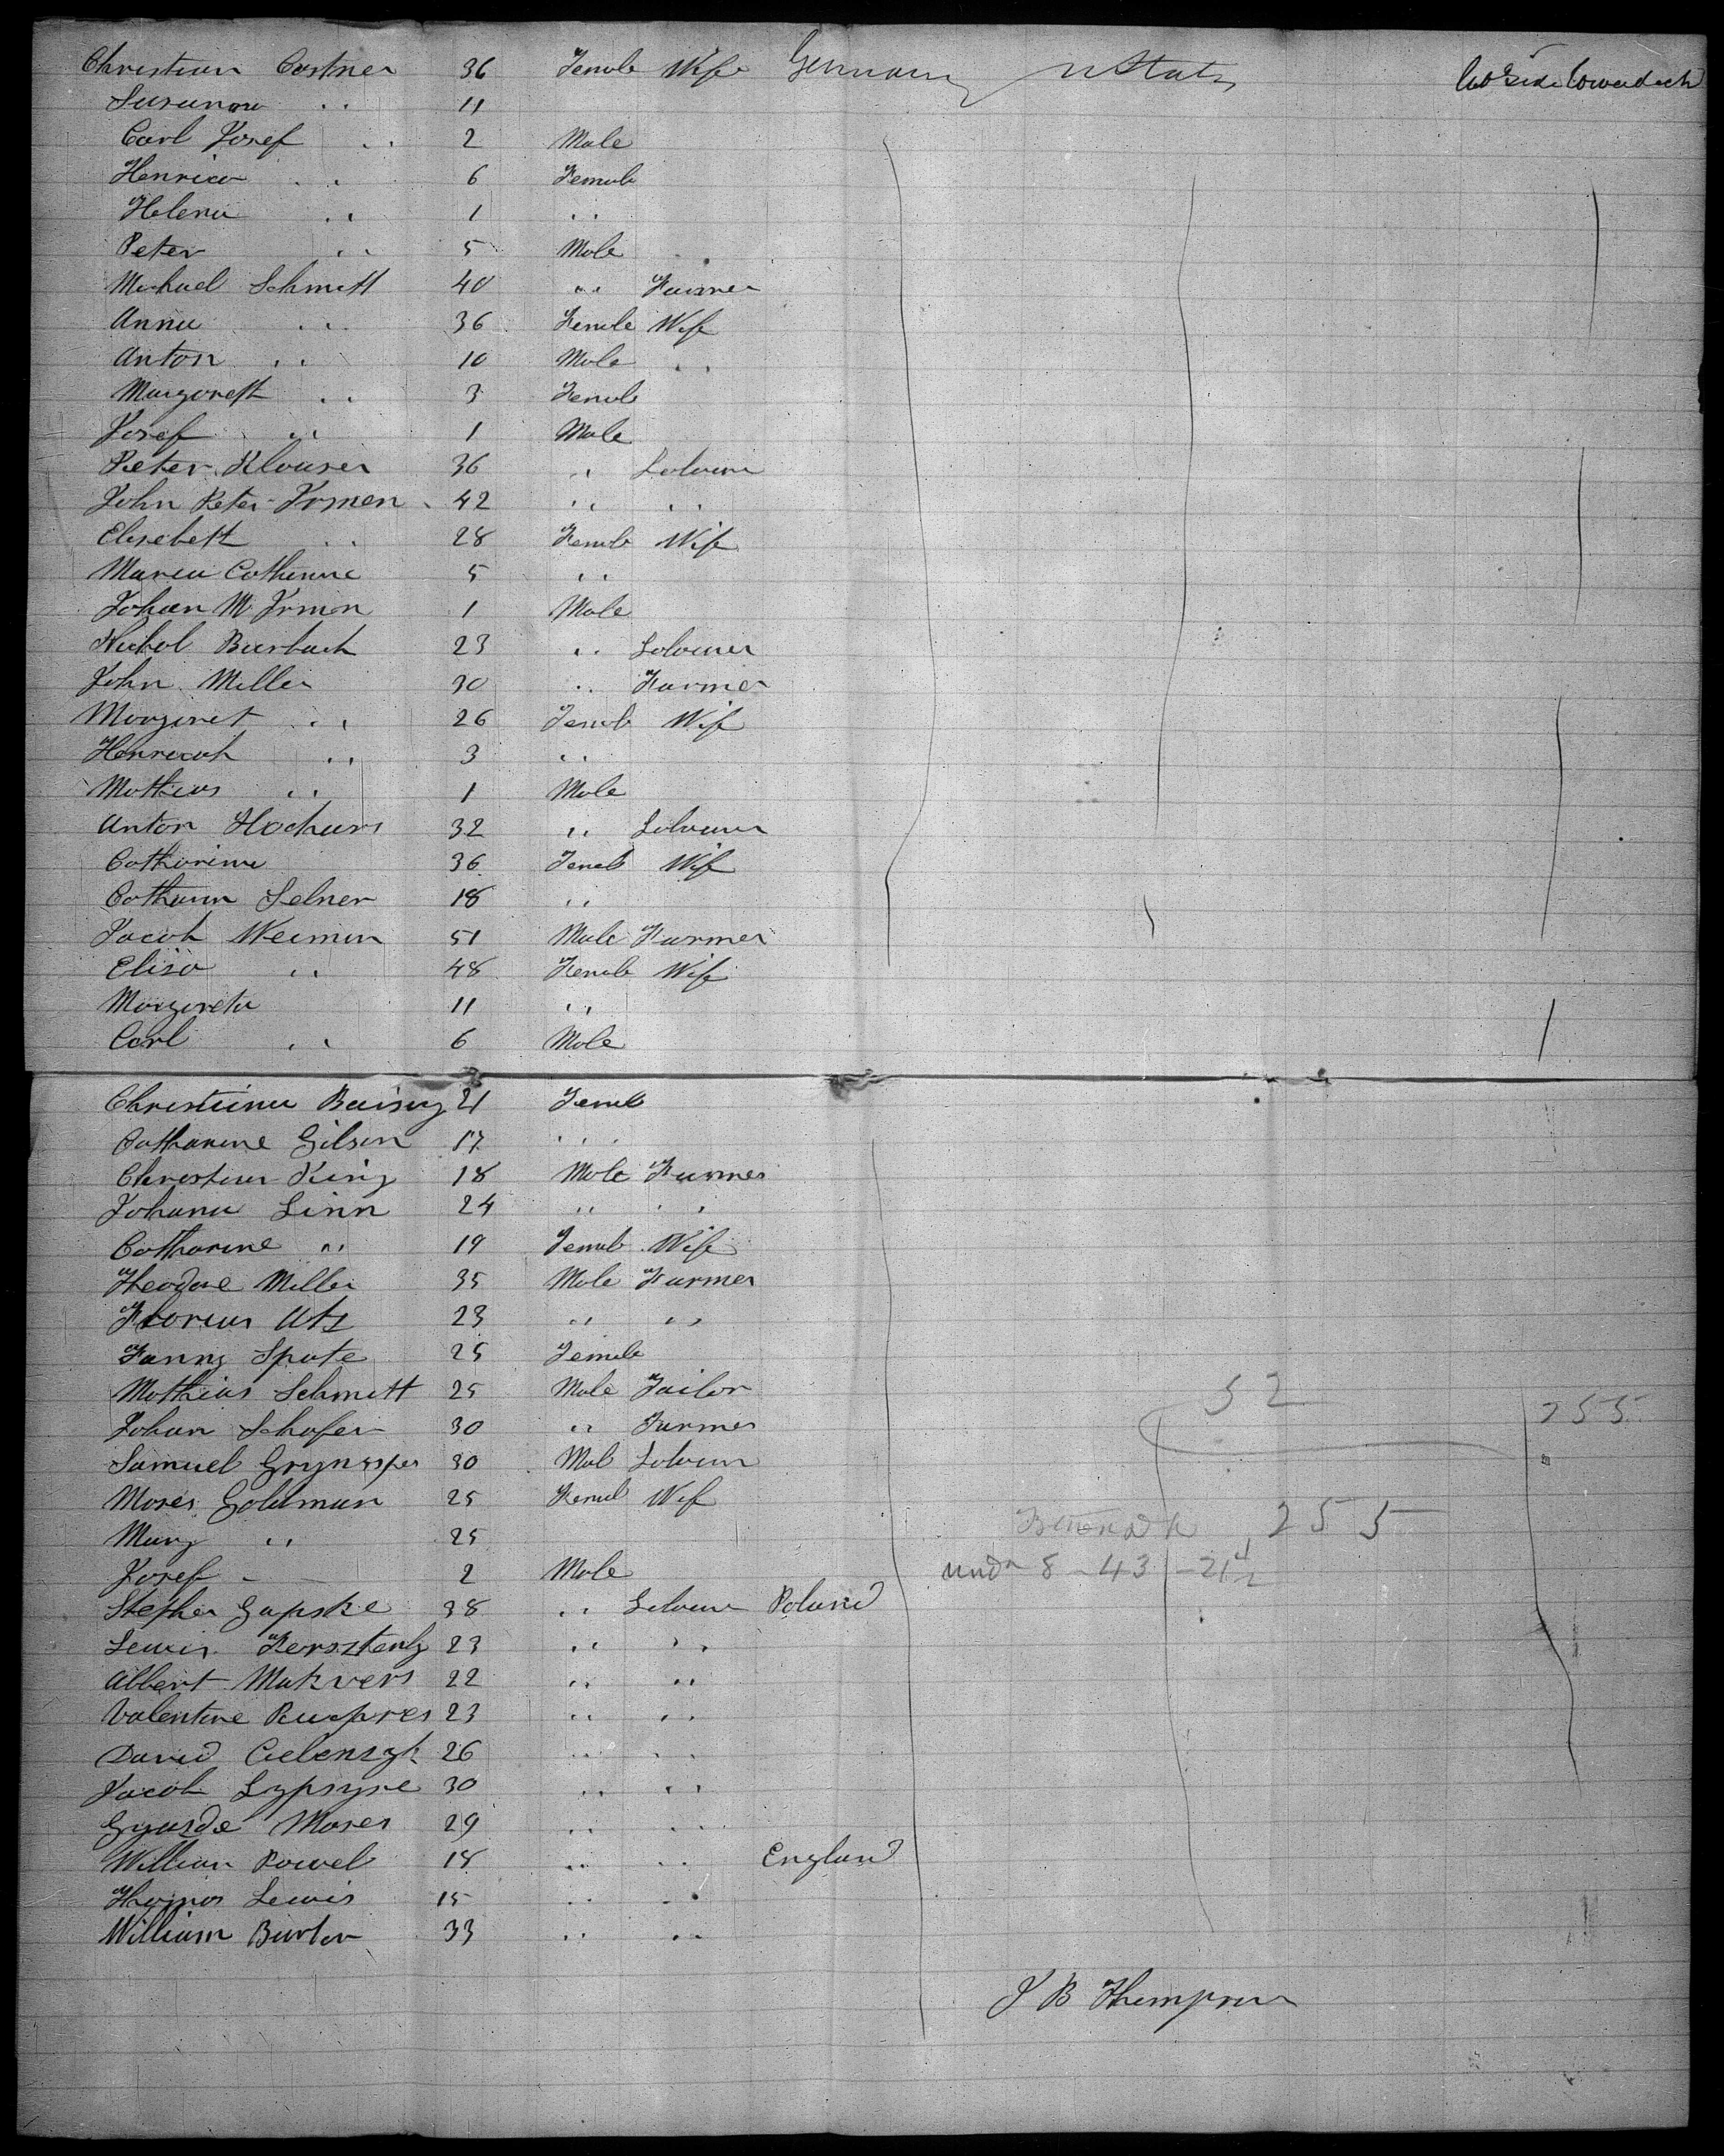 Christian Castner 36 Female Wife Germany U States
Susanna " 11
Carl Josef " 2 Male
Henrica " 6 Female
Helena " 1 "
Peter " 5 Male
Michael Schmitt 40 " Farmer
Anna " 36 Female Wife
Anton " 10 Male "
Margarett " 3 Female
Josef " 1 Male
Peter Klauser 36 " Labourer
John Peter Irmen 42 " "
Elisebett " 28 Female Wife
Maria Catherine 5 "
Johan M Irmen 1 Male
Nichol Burbach 23 " Labourer
John Miller 30 " Farmer
Margaret " 26 Female Wife
Henricah " 3 "
Mathias " 1 Male
Anton 32 " Labourer
Catharina 36 Female Wife
Catharin Selner 18 "
Jacob Weiman 51 Male Farmer
Elisa " 48 Female Wife
Margareta 11 "
Carl " 6 Male
Christiana 21 Female
Catharine Gilson 17 "
Christian King 18 Male Farmer
Johann Linn 24 " "
Catharine " 19 Female Wife
Theodore Miller 35 Male Farmer
Florian Utz 23 " "
Fanny Spate 25 Female
Mathias Schmitt 25 Male Tailor
52
255
Johan Schafer 30 " Farmer
Samuel 30 Male Labourer
Moses Goldman 25 Female Wife
Mary " 25
255
Josef - 2 Male
under 8 - 43 - 21 1/2
Stephen Gapske 38 " Labourer Poland
Lewis 23 " "
Albert 22 " "
Valentine 23 " "
David 26 " "
Jacob 30 " "
Moses 29 " "
William Powel 18 " " England
Thomas Lewis 15 " "
William Burton 33 " "
J B Thompson